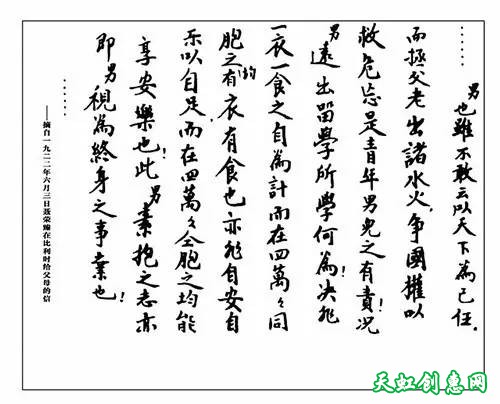 ……
男也雖不敢云以天下為己任,
而拯父老出諸水火,争國權以
救危忘是青年男兒之有責!况
男遠出留學所學何為!决非
一衣一食之自為計而在四萬々同
胞之均有衣有食也亦非自安自
乐以自足而在四萬々仝胞之均能
享安樂也!此男素抱之志亦
即男視為終身之事業也!
……
——摘自一九二二年六月三日聂荣臻在比利时给父母的信
天虹创意网